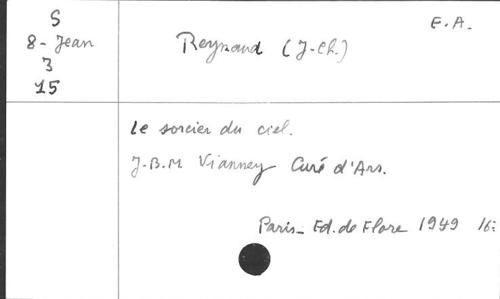 S
8 - Jean
3
15
E. A.
Reynaud (J-Ch.)
Le sorcier du ciel.
J.-B.M Vianney Curé d'Ars.
Paris - Ed. de Flore 1949 16: